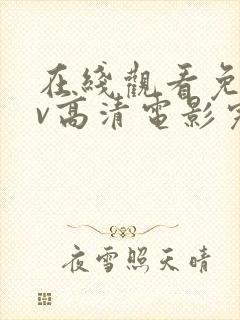 在綫觀看免
v高清電影完
夜雪照天晴